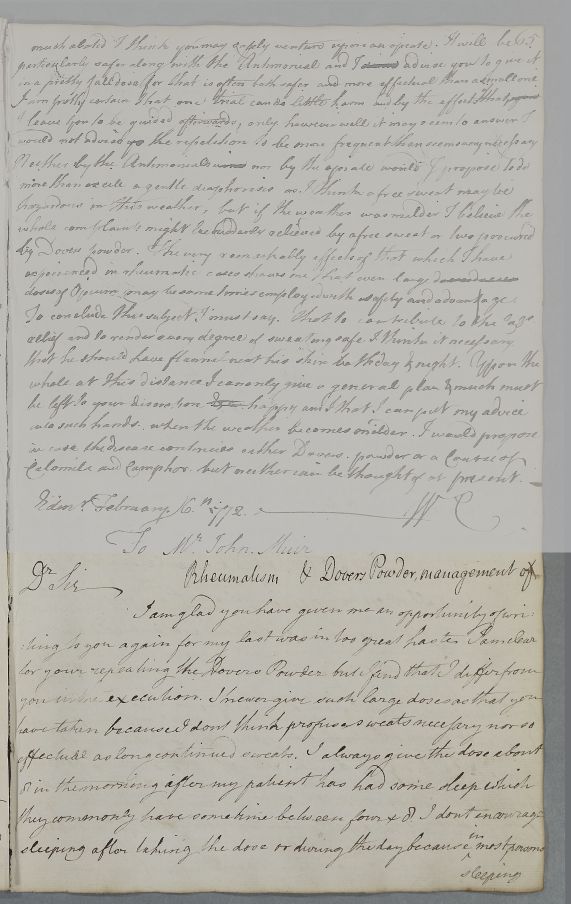 much abated I think you may safely venture upon an opiate. It will be 65
particularly safe along with the Antimonial and I advise you to give it
in a pretty full dose for that is often both safer and more effectual than a small one
I am pretty certain that one trial can do little harm and by the effects that
I leave you to be guided afterwards; only however well it may seem to answer I
would not advise yo the repetition to be more frequent than seems very necessary
Neither by the Antimonials nor by the opiate would I propose to do
more than excite a gentle diaphoresis as I think a free sweat may be
hazardous in this weather, but if the weather was milder I believe the
whole complaints might be suddenly relieved by a free sweat or two procured
by Dovers powder. The very remarkable effects of that which I have
experienced in rheumatic cases shows me that even large
doses of Opium may be sometimes employed with safety and advantage
To conclude this subject I must say. that to contribute to the
relief and to render every degree of sweating safe I think it necessary
that he should have flannel next his skin both day & night. Upon the
whole at this distance I can only give a general plan & much must
be left to your discretion. happy am I that I can put my advice
into such hands. when the weather becomes milder. I would propose
in case the disease continues either Dovers. powder or a Course of
Calomile and Camphor. but neither can be thought of at present.
Edinr. February 16.th 1772. W C
To Mr. John. Muir
Rheumatism & Dovers Powder, management of
Dr Sir
I am glad you have given me an opportunity of wri:
:ting to you again for my last was in too great haste. I am clear
for your repeating the Dovers Powder but I find that I differ from
you in the execution. I never give such large doses as that you
have taken because I dont think profuse sweats necessary nor so
effectual as long continued sweats. I always give the dose about
8 in the morning after my patient has had some sleep which
they commonly have sometime between four & 8 I dont encourage
sleeping after taking the dose or during the day because in most persons
sleeping